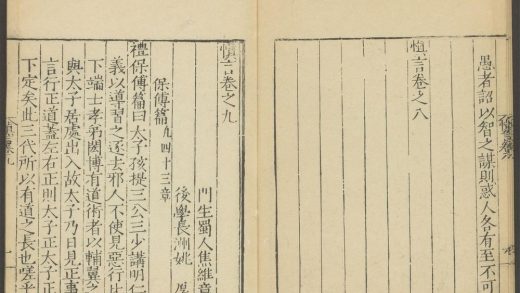 愚者詔以智之謀則惑人各有至不可
慎言卷之八
慎言卷之九
門生蜀人焦維章
後學長洲姚
保傅篇凡四十三章
禮保傅篇曰太子孩提三公三少講明仁
義以導習之逐去邪人不使見惡行比
下端士孝弟閎博有道術者以輔翼之
與太子居處出入故太子乃目見正事
言行正道蓋左右正則太子正太子正
下定矣此三代所以有道之長也嗟乎